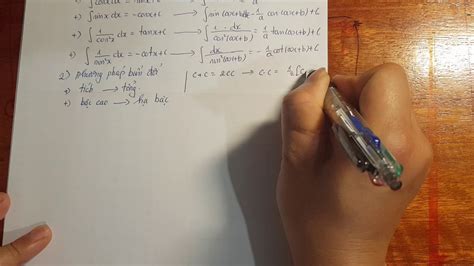 +) ∫sinx dx = -cosx + C → ∫sin(ax+b)dx = -1/a cos(ax+b) + C
+) ∫1/cos²x dx = tanx + C → ∫1·dx/cos²(ax+b) = 1/a tan(ax+b) + C
+) ∫1/sin²x dx = -cotx + C → ∫dx/sin²(ax+b) = -1/a cot(ax+b) + C
2) Phương pháp biến đổi
+) tích → tổng
+) bậc cao → hạ bậc
c + c = 2cc → c.c = 1/2[c